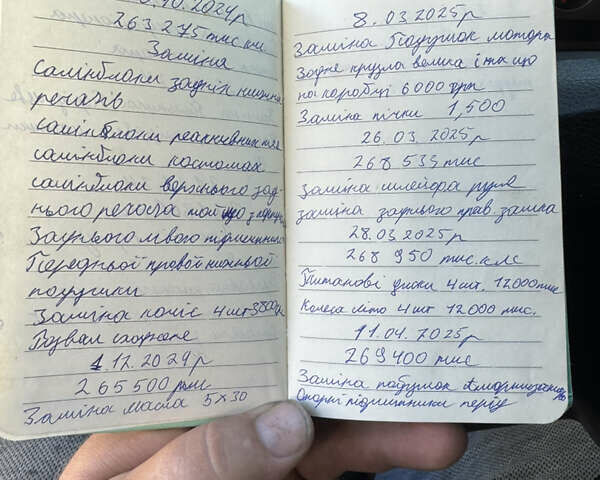 .10.2024р
263 275 тис км
Заміна
салінблоки задніх нижніх
речагів
салінблоки реактивних тяг
салінблоки костомах
салінблоки верхнього зад-
нього речага той що з пружи
Заднього лівого підшипника
Передньої правої нижньої
подушки
Заміна коліс 4 шт 3800гр
Розвал сходження
1.12.2024р
265 500 тис
Заміна масла 5×30
8.03.2025р
Заміна Подушок мотора
Задня кругла велика і та що
на коробці 6000 грн
Заміна пічки 1,500
26.03.2025р
268 535 тис
Заміна шлейфа руля
заміна заднього прав. замка
28.03.2025р
268 950 тис.км
Титанові диски 4 шт. 12000тис
Колеса літо 4 шт 12 000 тис.
11.04.2025р
269 400 тис
Заміна подушок Амортизатор
Опорні підшипники перід